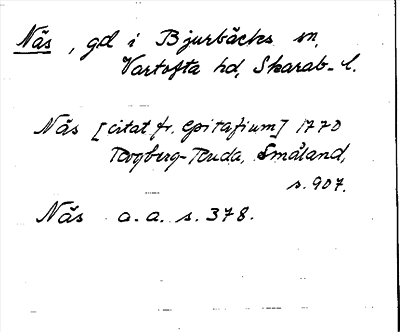 Näs, gd i Bjurbäcks sn,
Vartofta hd, Skarab. l.
Näs [citat fr. Epitafium] 1770
Rogberg-Ruda, Småland,
s. 907.
Näs a. a. s. 378.